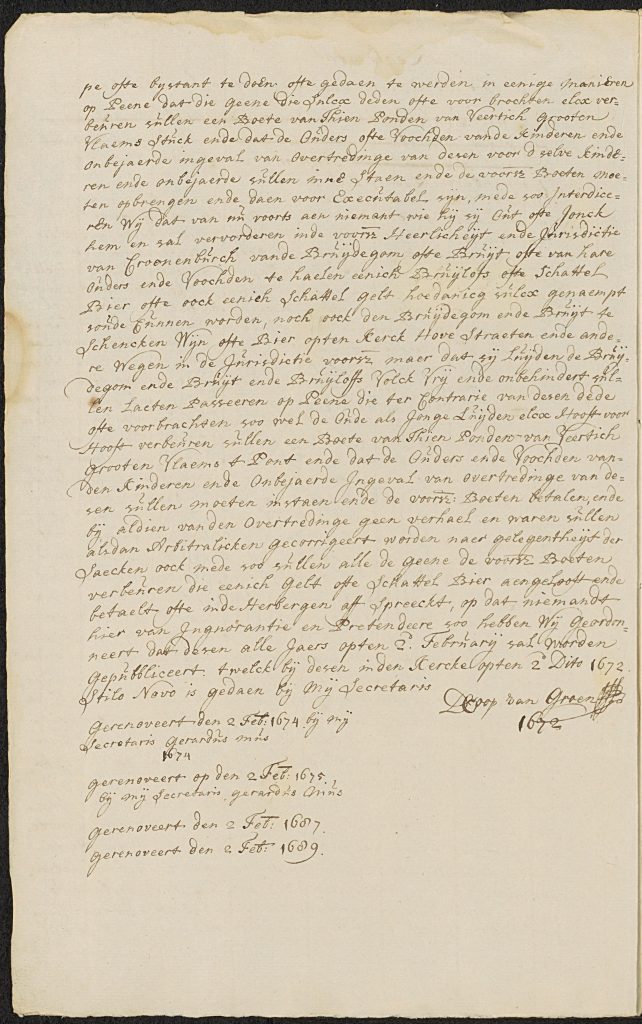 pe ofte bystant te doen ofte gedaen te werden in eenige manieren
op Peene dat die geene die Sulcx deden ofte voor brochten elcx ver-
beuren sullen een Boete van Thien Ponden van Veertich Grooten
Vlaems Stuck ende dat de Ouders ofte Voochden vande Kinderen ende
onbejaerde ingeval van overtredinge van desen voor d selve Kinde-
ren ende onbejaerde sullen inne Staen ende de voorsz Boeten moe-
ten opbrengen ende daen voor Executabel syn, mede soo Interdice-
ren Wij dat van nu voorts aen niemant wie hij sij Out ofte Jonck
hem en sal vervorderen inde voorsz Heerlicheijt ende Jurisdictie
van Croonenburch vande Bruijdegom ofte Bruijt ofte van hare
Ouders ende Voochden te haelen eenich Bruijlofs ofte Schattel
Bier ofte oock eenich Schattel gelt hoedanicg sulcx genaempt
soude Cunnen worden, noch oock den Bruijdegom ende Bruijt te
Schencken Wijn ofte Bier opten Kerck Hove Straeten ende ande-
re Wegen in de Jurisdictie voorsz maer dat sij Luijden de Bruij-
degom ende Bruijt ende Bruijloffs Volck Vrij ende onbehindert sul-
len Laeten Passeeren op Peene die ter Contrarie van desen dede
ofte voorbrachten soo wel de Oude als Jonge Luijden elcx Hooft voor
Hooft verbeuren sullen een Boete van Thien Ponden van Veertich
Grooten Vlaems t Pont ende dat de Ouders ende Voochden van-
den Kinderen ende Onbejaerde Ingeval van overtredinge van de-
sen sullen moeten instaen ende de voorsz Boeten betalen, ende
bij aldien vanden Overtredinge geen verhael en waren sullen
alsdan Arbitralicken gecorrigeert worden naer gelegentheijt der
Saecken oock mede soo sullen alle de geene de voorsz Boeten
verbeuren die eenich Gelt ofte Schattel Bier aengelooft ende
betaelt ofte inde Herbergen aff Spreeckt, op dat niemandt
hier van Ingnorantie en Pretendeere soo hebben Wij Geordon-
neert dat desen alle Jaers opten 2. Februarij sal worden
Gepubbliceert. twelck bij desen inden Kercke opten 2 Dito 1672.
Stilo Novo is gedaen bij Mij Secretaris
D Coop van Groen
1672
Gerenoveert den 2 Feb: 1674 bij mij
Secretaris Gerardus
1674
gerenoveert op den 2 Feb: 1675.
bij mij Secretaris. Gerardus
gerenoveert den 2 Feb: 1687.
gerenoveert den 2 Feb: 1689.